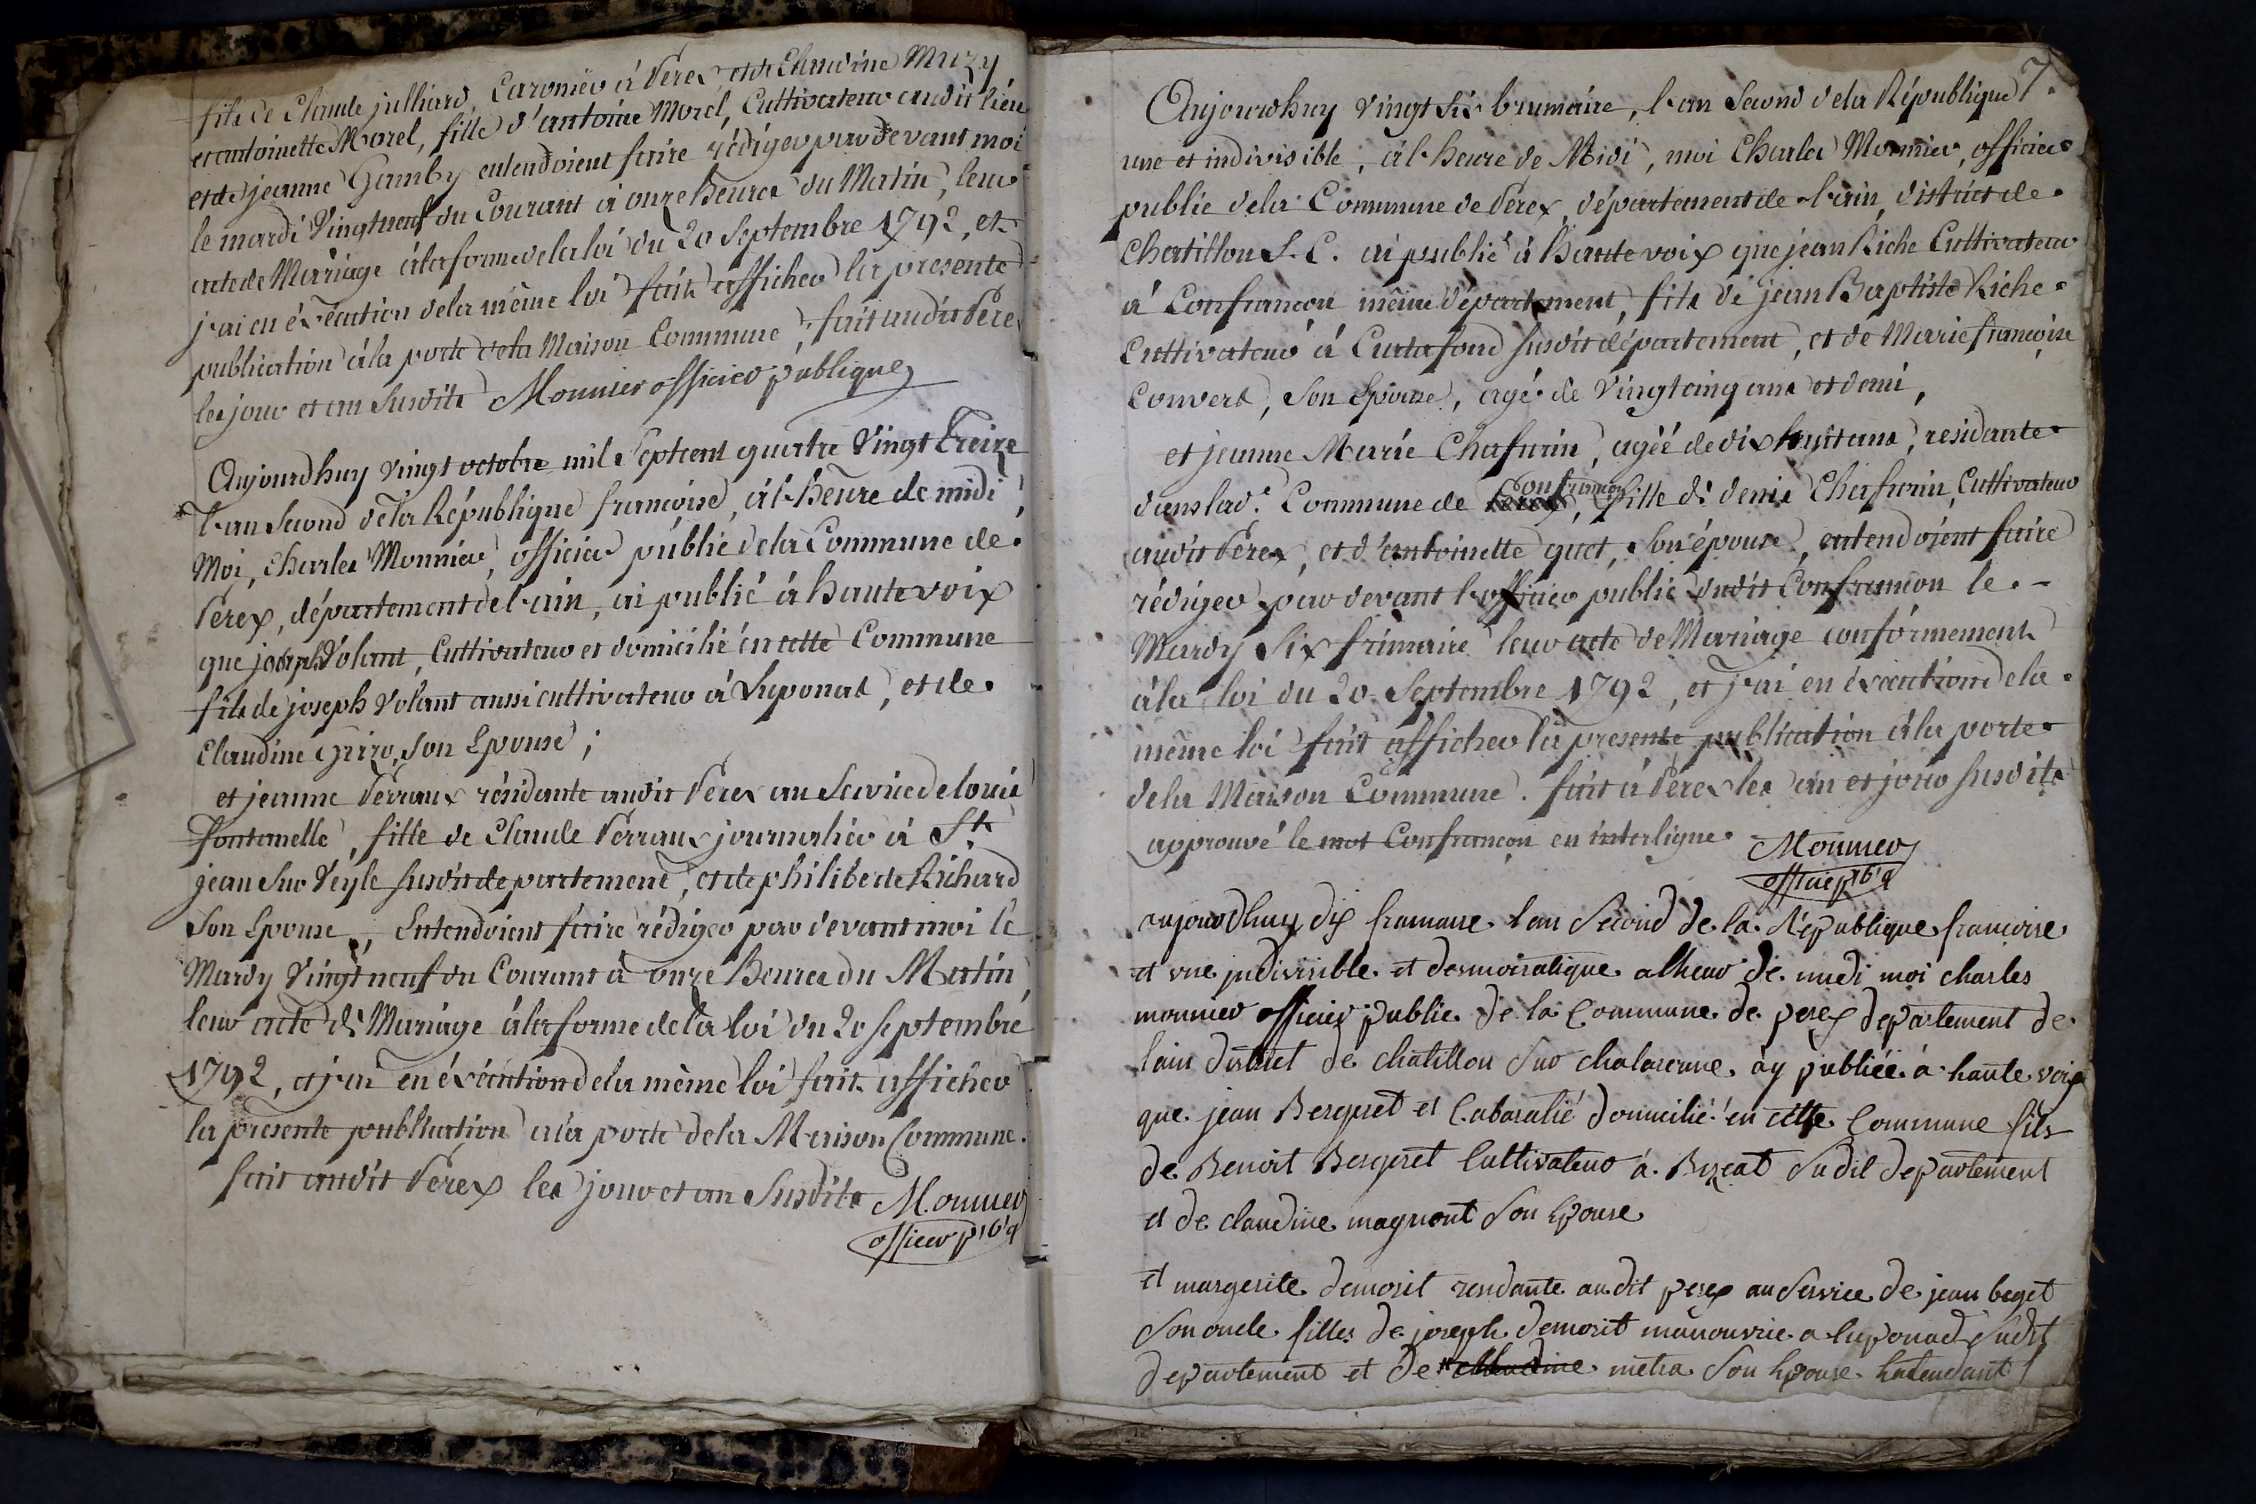 fils de Claude julliard, Caronnier à Perex, et de Claudine Muzy
et antoinette Morel, fille d'antoine Morel, Cultivateur audit lieu
et de jeanne Gamby entendoient faire rédiger par devant moi
le mardi Vingtneuf du Courant à onze heures du Matin, leur
acte de Mariage à la forme de la loi du 20 Septembre 1792, et
j'ai en éxécution de la même loi fait afficher la presente
publication à la porte de la Maison Commune, fait audit Perex
les jour et an Susdits Monnier officier publique
Aujourdhuy vingt octobre mil Septcent quatre Vingt Treize
l'an Second de la République françoise, à l'heure de midi,
Moi, Charles Monnier, officier public de la Commune de
Perex, département de l'ain, ai publié à haute voix
que joseph Volant, Cultivateur et domicilié en cette Commune
fils de joseph Volant aussi cultivateur à Luponas, et de
Claudine , Son Epouse;
et jeanne Perraux résidante audit Perex au Service de louis
fontenelle, fille de Claude Perraux journalier à St.
jean Sur Veyle susdit departement, et de philiberte Richard
Son Epouse, Entendoient faire rédiger par devant moi le
Mardy Vingt neuf du Courant à onze Heures du Matin,
leur acte de Mariage à la forme de la loi du 20 septembre
1792, et j'ai en éxécution de la même loi fait afficher
la presente publication à la porte de la Maison Commune.
fait audit Perex les jour et an Susdits Monnier
officier p'b'q
7.
Aujourdhuy vingt six brumaire, l'an Second de la République
une et indivisible, à l'heure de Midi, moi Charles Monnier, officier
public de la Commune de Perex, département de l'ain, district de
Chatillon S. C. ai publié à haute voix que jean Riche Cultivateur
à Confrançon même département, fils de jean Baptiste Riche
Cultivateur à Curtafond susdit département, et de Marie françoise
Convert, Son Epouse, agé de Vingt cinq ans et demi,
et jeanne Marie Chafurin, agée de dix huit ans, residante
dans lad.e Commune de Confrançon, fille de denis Chafurin, Cultivateur
audit Perex, et d'antoinette guet, Son épouse, entendoient faire
rédiger par devant l'officier public dudit Confrançon le
Mardy Six frimaire leur acte de Mariage conformement
à la loi du 20 Septembre 1792, et j'ai en éxécution de la
même loi fait afficher la presente publication à la porte
de la Maison Commune. fait à Perex les an et jour susdits
approuvé le mot Confrançon en interligne Monnier
officier p'b'q
aujourdhuy dix l'an Second de la République françoise
et une judivisible et desmocratique alheur de midi moi charles
monnier officier public de la Commune de perex departement de
lain district de chatillon sur chalaronne ay publiée à haute voix
que jean Bergeret et Cabaratié domicilié en cette Commune fils
de Benoit Bergeret Cultivateur à Bizeat Sudit departement
et de claudine magnont Son Epouse
et margerite demorit residante audit perex au Service de jean beget
Son oncle filles de joseph demorit manouvrie a luponad Sudit
departement et de claudine metra Son Epouse hentendant